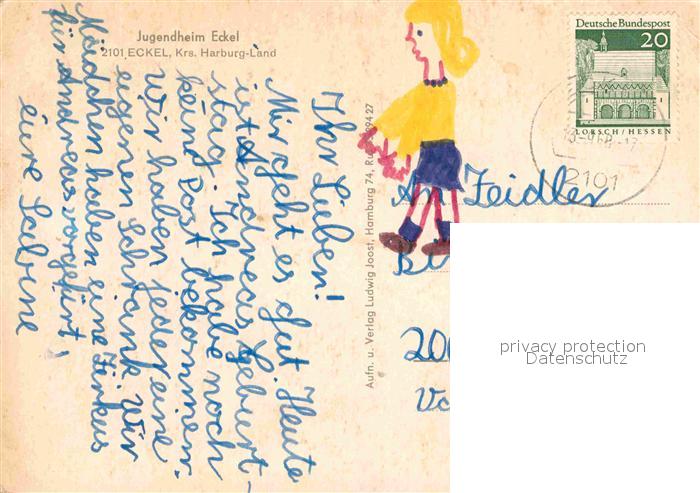 Jugendheim Eckel
2101 ECKEL, Krs. Harburg-Land
Ihr Lieben!
Mir geht es gut. Heute
ist Andreas Geburt-
stag. Ich habe noch
keine Post bekommen.
Wir haben jeder eine
eigenen Schrank. Wir
Mädchen haben eine Zirkus
für Andreas vorgefürt!
eure Sabine
Aufn. u. Verlag Ludwig Joost, Hamburg 74, Ruf
94 27
Deutsche Bundespost
20
LORSCH / HESSEN
2101
An Zeidler
privacy protection
Datenschutz